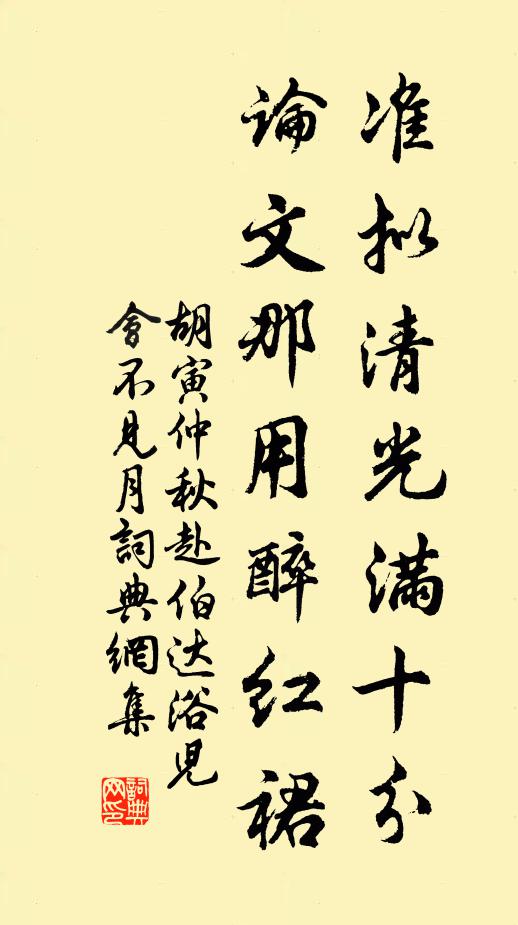 准拟清光满十分
論文那用醉红裙
胡寅仲秋赴伯达浴児
會不見月詞典網集
詞典
网印